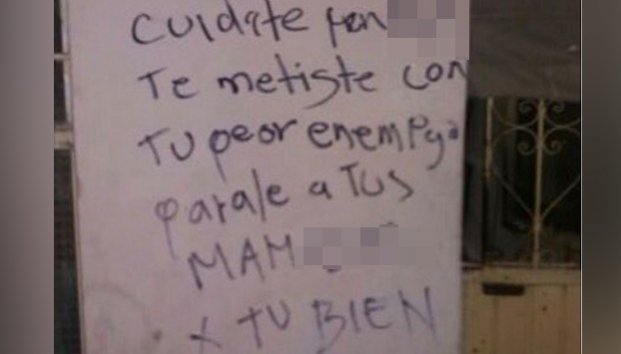 CUIDATE pen
Te metiste con
TU peor enemiga
parale a TUS
MAM
x TU BIEN